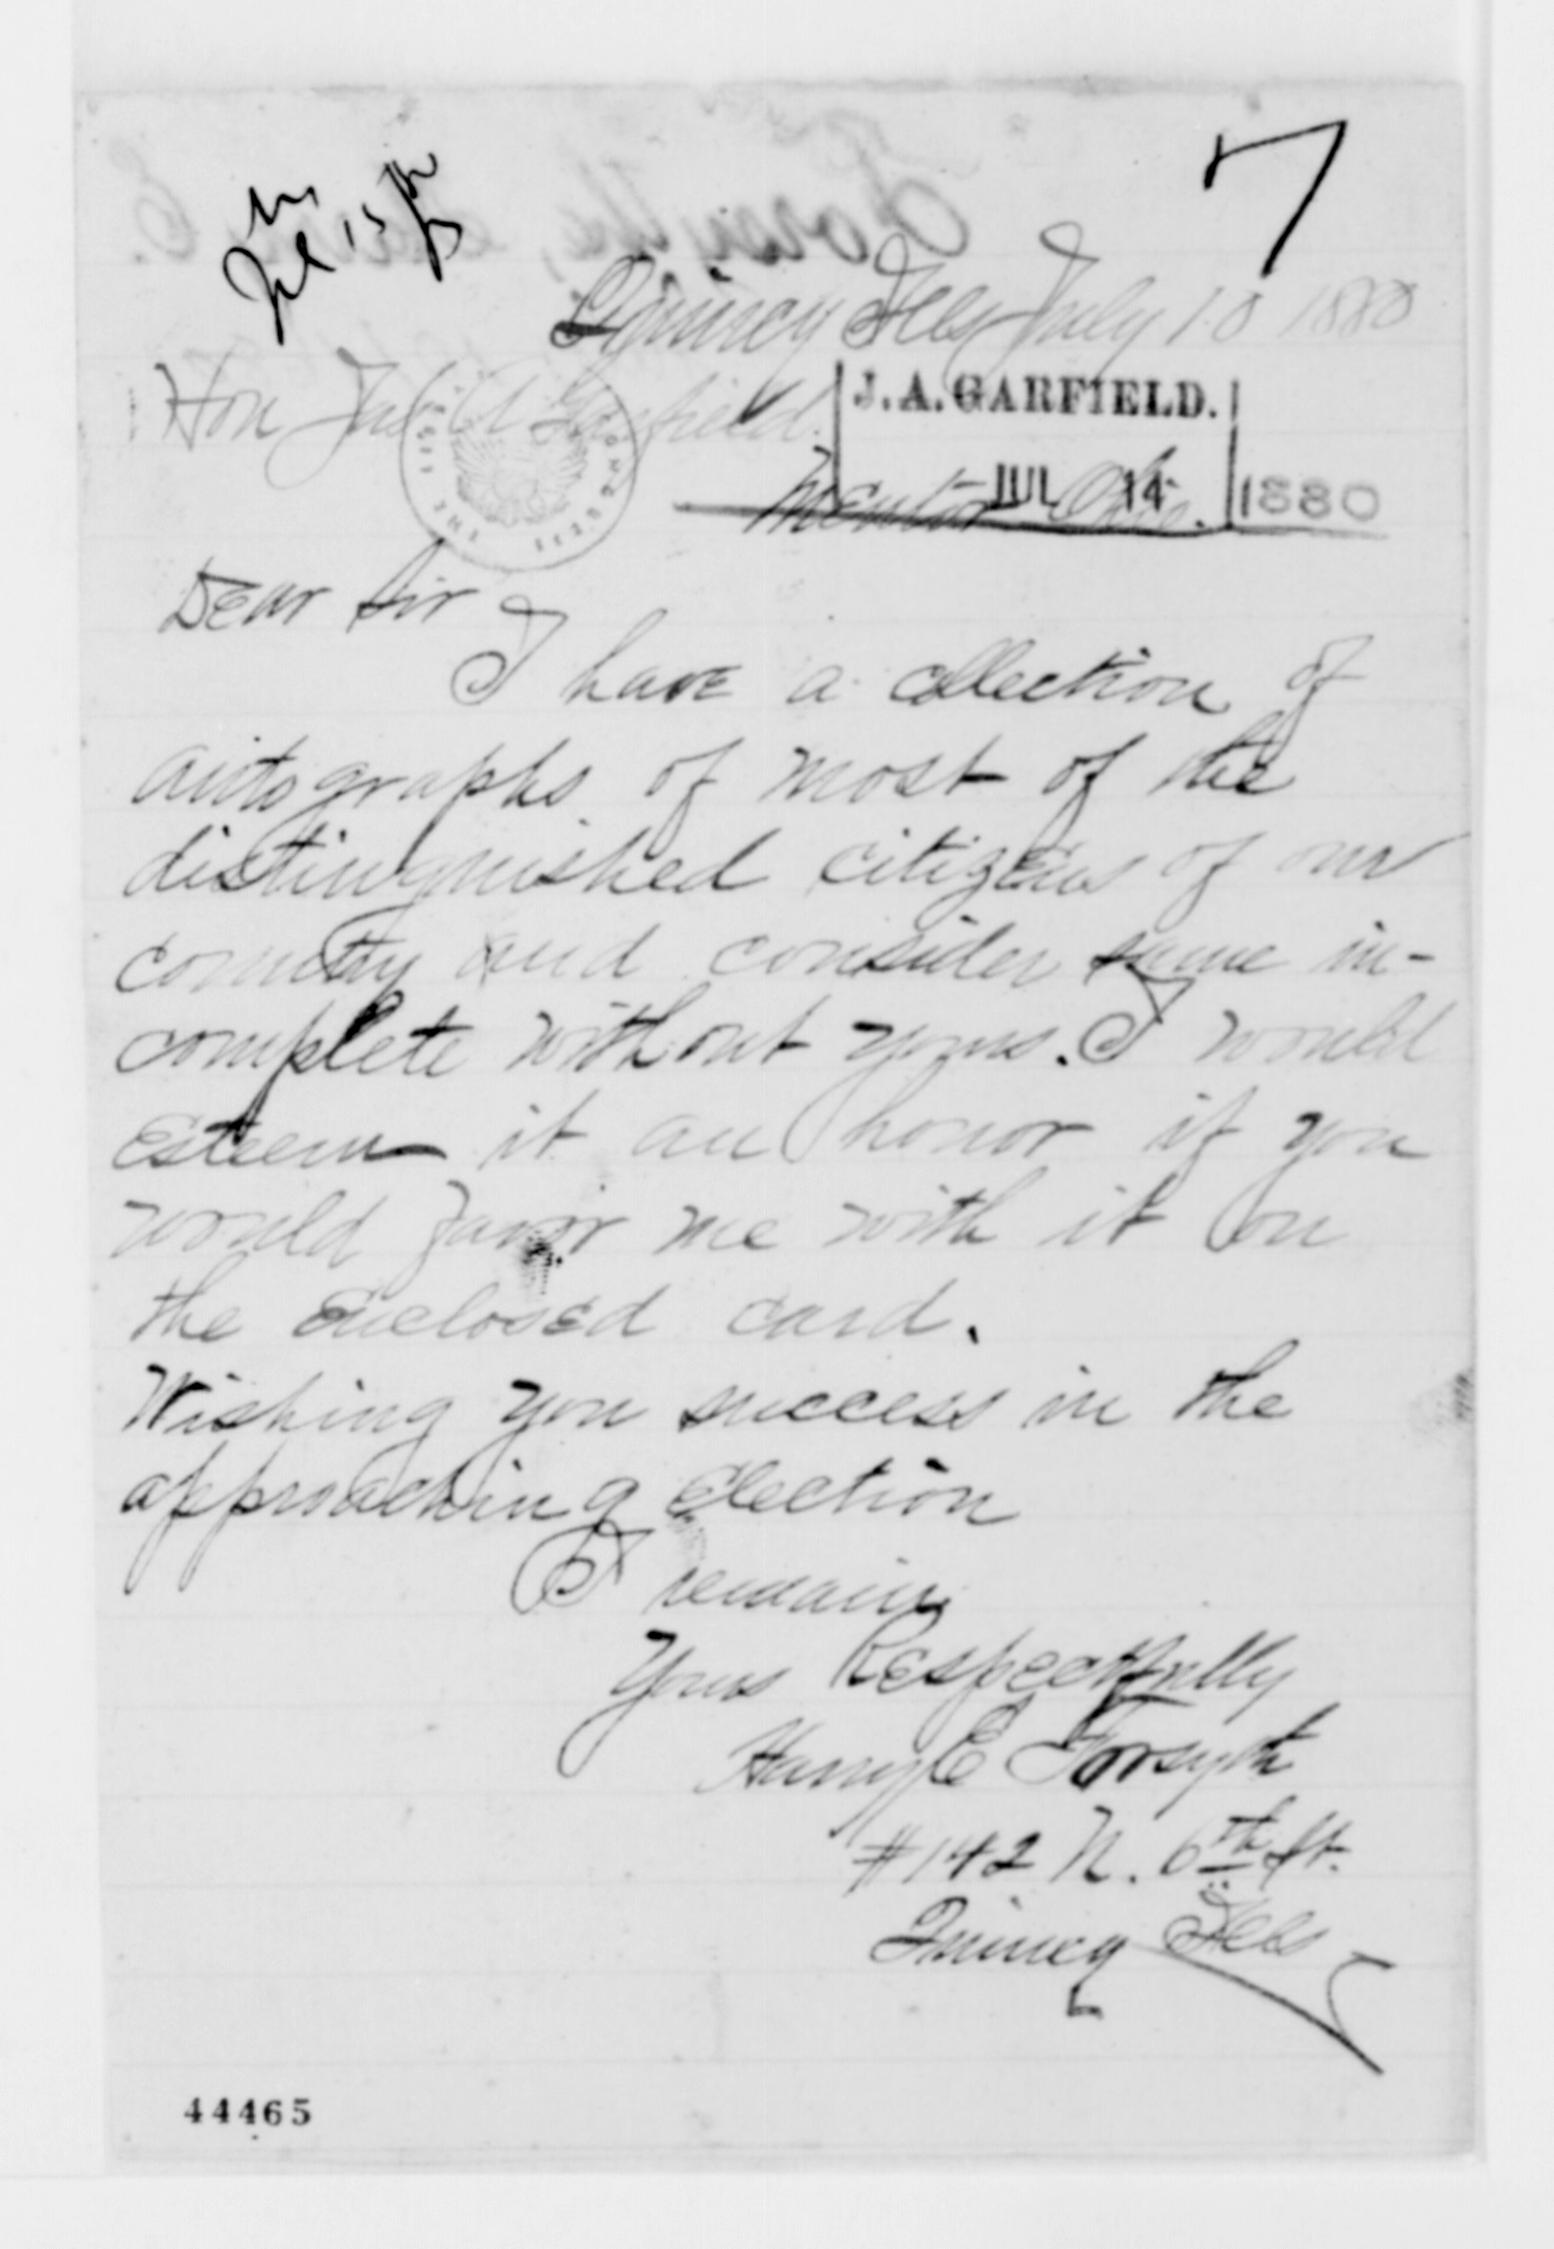 7
Jul 15
Quincy Ills July 10 1880
Hon Jas A Garfield.
J.A. GARFIELD.
JUL 14 1880
Mentor Ohio.
Dear Sir
I have a collection of
autographs of most of the
distinguished citizens of our
country and consider same in-
complete without yours. I would
Esteem it an honor if you
would favor me with it on
the Enclosed card.
Wishing you success in the
approaching Election
I remain
Yours Respectfully
Harry E Forsyth
#142 N. 6th St.
Quincy Ills
44465